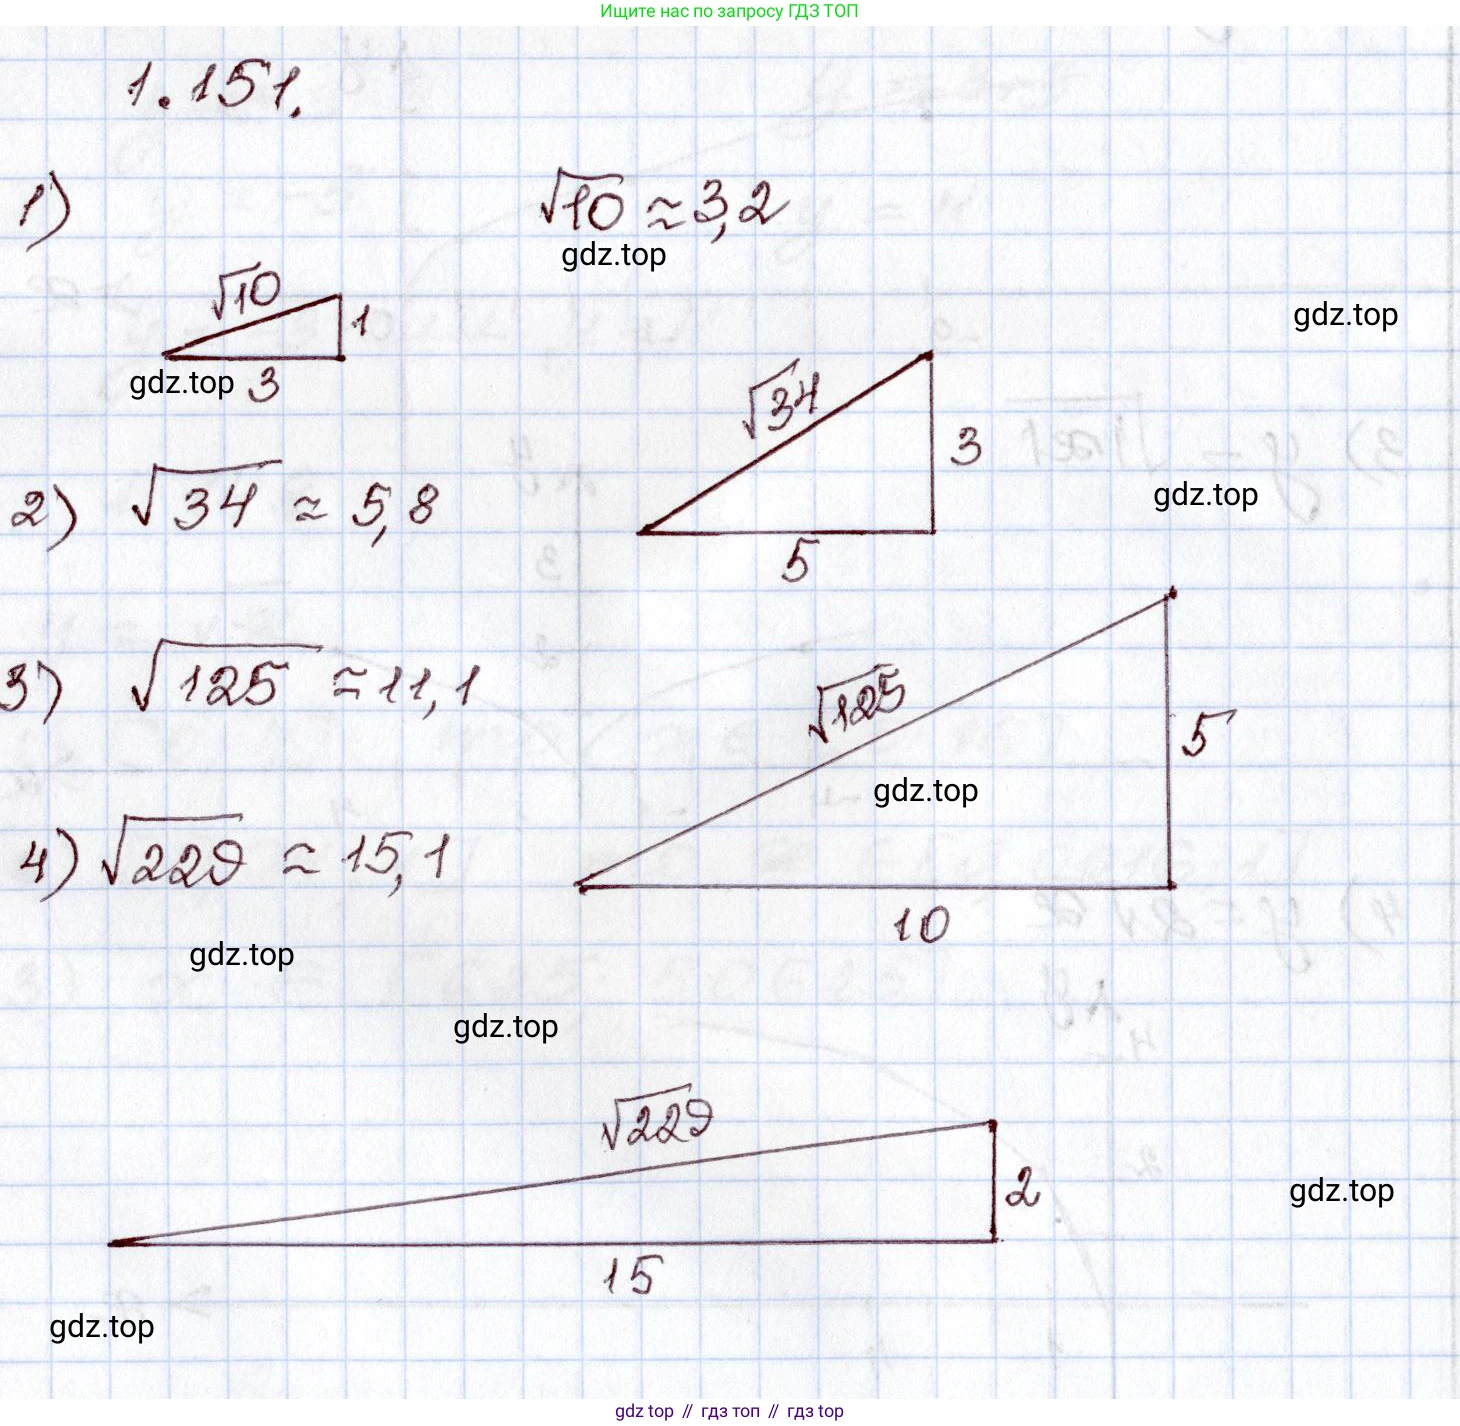 Ищите нас по запросу ГДЗ ТОП
1.151.
1)
√10 ≈ 3,2
gdz.top
√10
1
gdz.top
3
gdz.top
√34
3
2) √34 ≈ 5,8
gdz.top
5
3) √125 ≈ 11,1
√125
5
gdz.top
4) √229 ≈ 15,1
10
gdz.top
gdz.top
√229
2
gdz.top
15
gdz.top
gdz top // гдз топ // гдз top